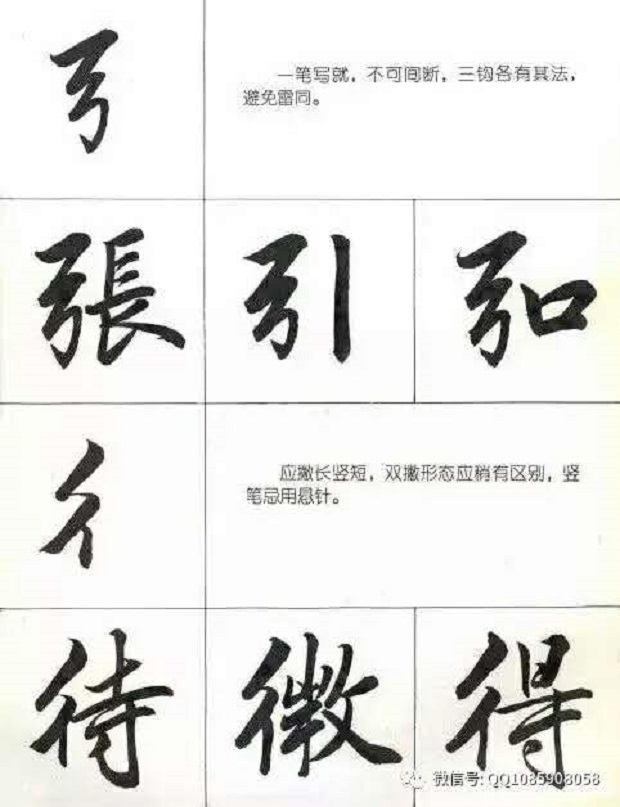 弓
一笔写就，不可间断，三钩各有其法，
避免雷同。
張 引 弘
彳
应撇长竖短，双撇形态应稍有区别，竖
笔忌用悬针。
待 微 得
微信号: QQ1085908058